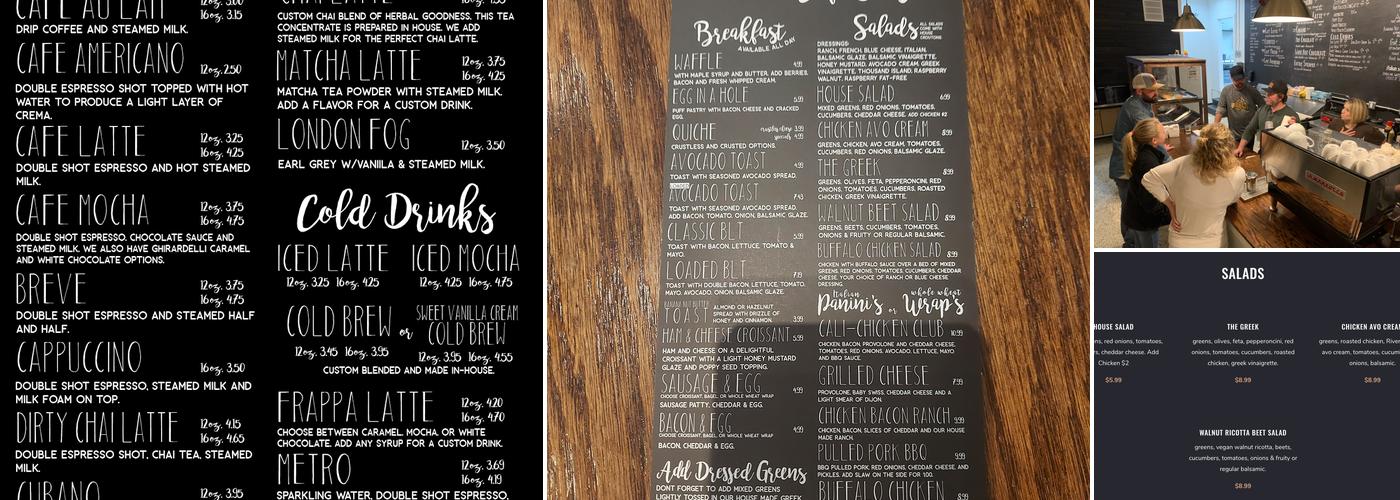 CAFE AU LAIT
12oz. 3.00
16oz. 3.15
DRIP COFFEE AND STEAMED MILK.
CAFE AMERICANO
12oz. 2.50
DOUBLE ESPRESSO SHOT TOPPED WITH HOT
WATER TO PRODUCE A LIGHT LAYER OF
CREMA.
CAFE LATTE
12oz. 3.25
16oz. 4.25
DOUBLE ESPRESSO AND HOT STEAMED
MILK.
CAFE MOCHA
12oz. 3.75
16oz. 4.75
DOUBLE SHOT ESPRESSO, CHOCOLATE SAUCE AND
STEAMED MILK. WE ALSO HAVE GHIRARDELLI CARAMEL
AND WHITE CHOCOLATE OPTIONS.
BREVE
12oz. 3.75
16oz. 4.75
DOUBLE SHOT ESPRESSO AND STEAMED HALF
AND HALF.
CAPPUCCINO
16oz. 3.50
DOUBLE SHOT ESPRESSO, STEAMED MILK AND
MILK FOAM ON TOP.
DIRTY CHAI LATTE
12oz. 4.15
16oz. 4.65
DOUBLE ESPRESSO SHOT, CHAI TEA, STEAMED
MILK.
CUBANO
12oz. 3.95
16oz. 4.75
CUSTOM CHAI BLEND OF HERBAL GOODNESS. THIS TEA
CONCENTRATE IS PREPARED IN HOUSE. WE ADD
STEAMED MILK FOR THE PERFECT CHAI LATTE.
MATCHA LATTE
12oz. 3.75
16oz. 4.25
MATCHA TEA POWDER WITH STEAMED MILK.
ADD A FLAVOR FOR A CUSTOM DRINK.
LONDON FOG
12oz. 3.50
EARL GREY W/VANIILA & STEAMED MILK.
Cold Drinks
ICED LATTE
12oz. 3.25 16oz. 4.25
ICED MOCHA
12oz. 4.25 16oz. 4.75
COLD BREW
or
SWEET VANILLA CREAM
COLD BREW
12oz. 3.45 16oz. 3.95
12oz. 3.95 16oz. 4.55
CUSTOM BLENDED AND MADE IN-HOUSE.
FRAPPA LATTE
12oz. 4.20
16oz. 4.70
CHOOSE BETWEEN CARAMEL, MOCHA, OR WHITE
CHOCOLATE. ADD ANY SYRUP FOR A CUSTOM DRINK.
METRO
12oz. 3.69
16oz. 4.19
SPARKLING WATER, DOUBLE SHOT ESPRESSO,
Breakfast
AVAILABLE ALL DAY
WAFFLE 4.99
WITH MAPLE SYRUP AND BUTTER. ADD BERRIES,
BACON AND FRESH WHIPPED CREAM.
EGG IN A HOLE 5.99
PUFF PASTRY WITH BACON, CHEESE AND CRACKED
EGG.
QUICHE
crustless cheese 3.99
specials 4.99
CRUSTLESS AND CRUSTED OPTIONS.
AVOCADO TOAST 4.99
TOAST WITH SEASONED AVOCADO SPREAD.
LOADED
AVOCADO TOAST 7.43
TOAST WITH SEASONED AVOCADO SPREAD.
ADD BACON, TOMATO, ONION, BALSAMIC GLAZE.
CLASSIC BLT 5.99
TOAST WITH BACON, LETTUCE, TOMATO &
MAYO.
LOADED BLT 7.19
TOAST WITH DOUBLE BACON, LETTUCE, TOMATO,
MAYO, AVOCADO, ONION, BALSAMIC GLAZE.
BANANA NUT BUTTER
TOAST
ALMOND OR HAZELNUT
SPREAD WITH DRIZZLE OF
HONEY AND CINNAMON.
HAM & CHEESE CROISSANT 5.99
HAM AND CHEESE ON A DELIGHTFUL
CROISSANT WITH A LIGHT HONEY MUSTARD
GLAZE AND POPPY SEED TOPPING.
SAUSAGE & EGG 4.99
CHOOSE CROISSANT, BAGEL, OR WHOLE WHEAT WRAP
SAUSAGE PATTY, CHEDDAR & EGG.
BACON & EGG 4.99
CHOOSE CROISSANT, BAGEL, OR WHOLE WHEAT WRAP
BACON, CHEDDAR & EGG.
Add Dressed Greens
DONT FORGET TO ADD MIXED GREENS
LIGHTLY TOSSED IN OUR HOUSE MADE GREEK
Salads
ALL SALADS
COME WITH
HOUSE
CROUTONS
DRESSINGS:
RANCH, FRENCH, BLUE CHEESE, ITALIAN,
BALSAMIC GLAZE, BALSAMIC VINAIGRETTE,
HONEY MUSTARD, AVOCADO CREAM, GREEK
VINAIGRETTE, THOUSAND ISLAND, RASPBERRY
WALNUT, RASPBERRY FAT-FREE
HOUSE SALAD 6.99
MIXED GREENS, RED ONIONS, TOMATOES,
CUCUMBERS, CHEDDAR CHEESE. ADD CHICKEN $2
CHICKEN AVO CREAM 8.99
GREENS, CHICKEN, AVO CREAM, TOMATOES,
CUCUMBERS, RED ONIONS, BALSAMIC GLAZE.
THE GREEK 8.99
GREENS, OLIVES, FETA, PEPPERONCINI, RED
ONIONS, TOMATOES, CUCUMBERS, ROASTED
CHICKEN, GREEK VINAIGRETTE.
WALNUT BEET SALAD 8.99
GREENS, BEETS, CUCUMBERS, TOMATOES,
ONIONS & FRUITY OR REGULAR BALSAMIC.
BUFFALO CHICKEN SALAD 8.99
CHICKEN WITH BUFFALO SAUCE OVER A BED OF MIXED
GREENS, RED ONIONS, TOMATOES, CUCUMBERS, CHEDDAR
CHEESE, YOUR CHOICE OF RANCH OR BLUE CHEESE
DRESSING.
Italian
Panini's or
whole wheat
Wrap's
CALI-CHICKEN CLUB 10.99
CHICKEN, BACON, PROVOLONE AND CHEDDAR CHEESE,
TOMATOES, RED ONIONS, AVOCADO, LETTUCE, MAYO
AND BBQ.
GRILLED CHEESE 7.99
PROVOLONE, BABY SWISS, CHEDDAR CHEESE AND A
LIGHT SMEAR OF DIJON.
CHICKEN BACON RANCH 9.99
CHICKEN, BACON, SLICES OF CHEDDAR AND OUR HOUSE
MADE RANCH.
PULLED PORK BBQ 9.99
BBQ PULLED PORK, RED ONIONS, CHEDDAR CHEESE, AND
PICKLES. ADD SLAW ON THE SIDE FOR 1.00.
BUFFALO CHICKEN 8.99
SALADS
HOUSE SALAD
ns, red onions, tomatoes,
s, cheddar cheese. Add
Chicken $2
$5.99
THE GREEK
greens, olives, feta, pepperoncini, red
onions, tomatoes, cucumbers, roasted
chicken, greek vinaigrette.
$8.99
CHICKEN AVO CREA
greens, roasted chicken, River
avo cream, tomatoes, cucum
onions, balsamic.
$8.99
WALNUT RICOTTA BEET SALAD
greens, vegan walnut ricotta, beets,
cucumbers, tomatoes, onions & fruity or
regular balsamic.
$8.99